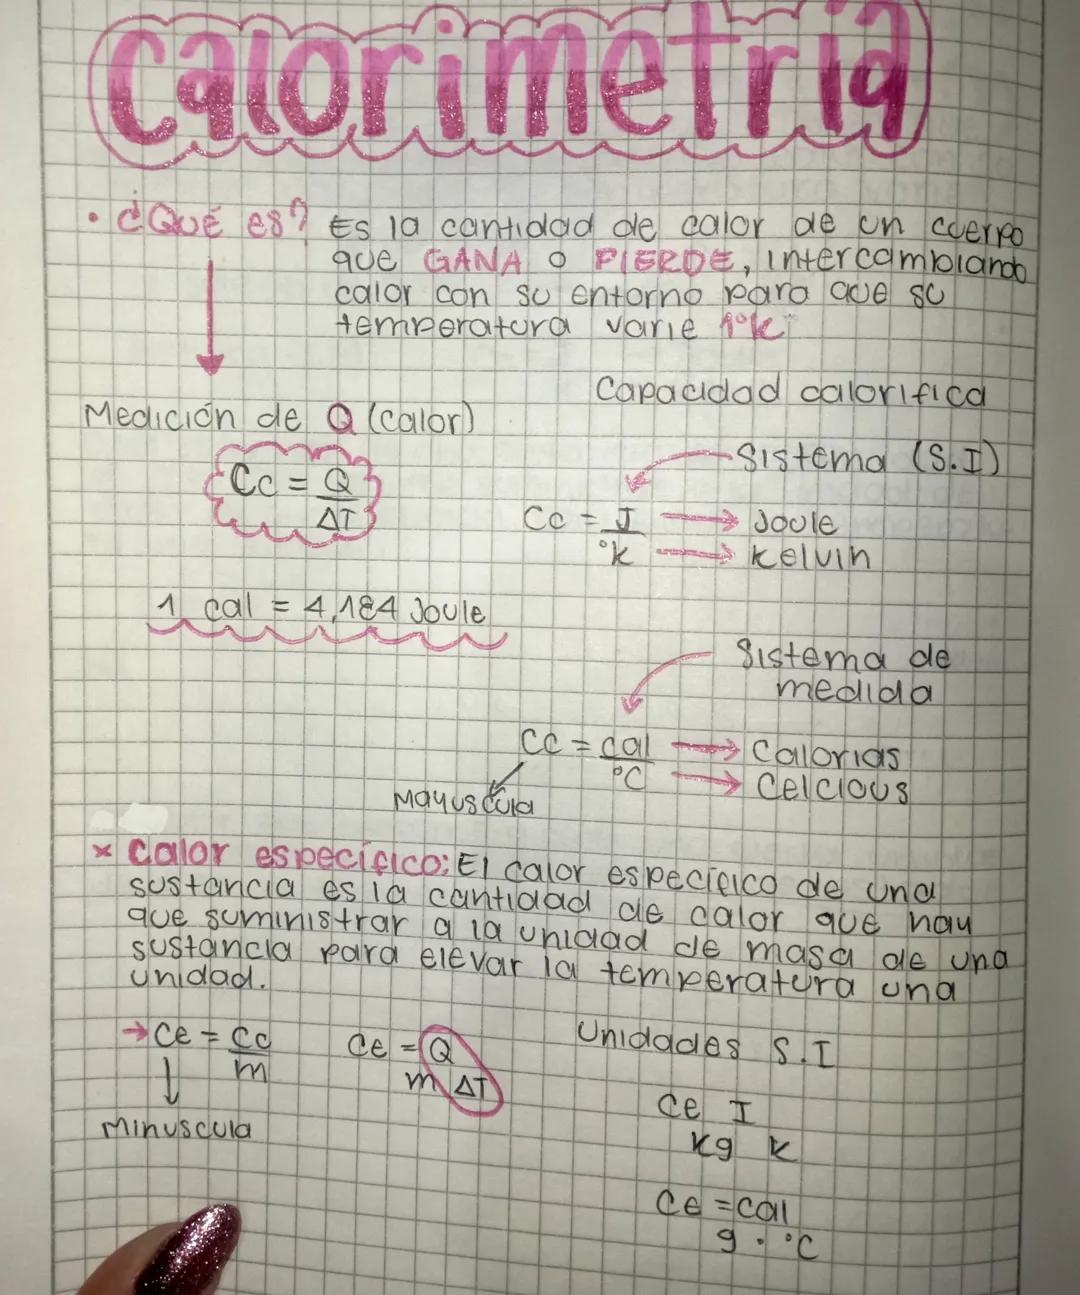 calorimetria
• ¿Qué es? Es la cantidad de calor de un cuerpo
que GANA o PIERDE, intercambiando
calor con su entorno para que su
temperatura varie 1°k
Medición de Q (calor)
Cc = Q
ΔT
Capacidad calorifica
Sistema (S.I)
Cc = J → Joule
°k → kelvin
1 cal = 4,184 Joule
Sistema de
medida
Cc = cal → Calorias
°C → Celcious
Mayuscula
× Calor específico: El calor especifico de una
sustancia es la cantidad de calor que hay
que suministrar a la unidad de masa de una
sustancia para elevar la temperatura una
unidad.
→ Ce = Cc
m
↓
Minuscula
Ce = Q
m ΔT
Unidades S.I
Ce I
kg k
Ce = cal
g . °C